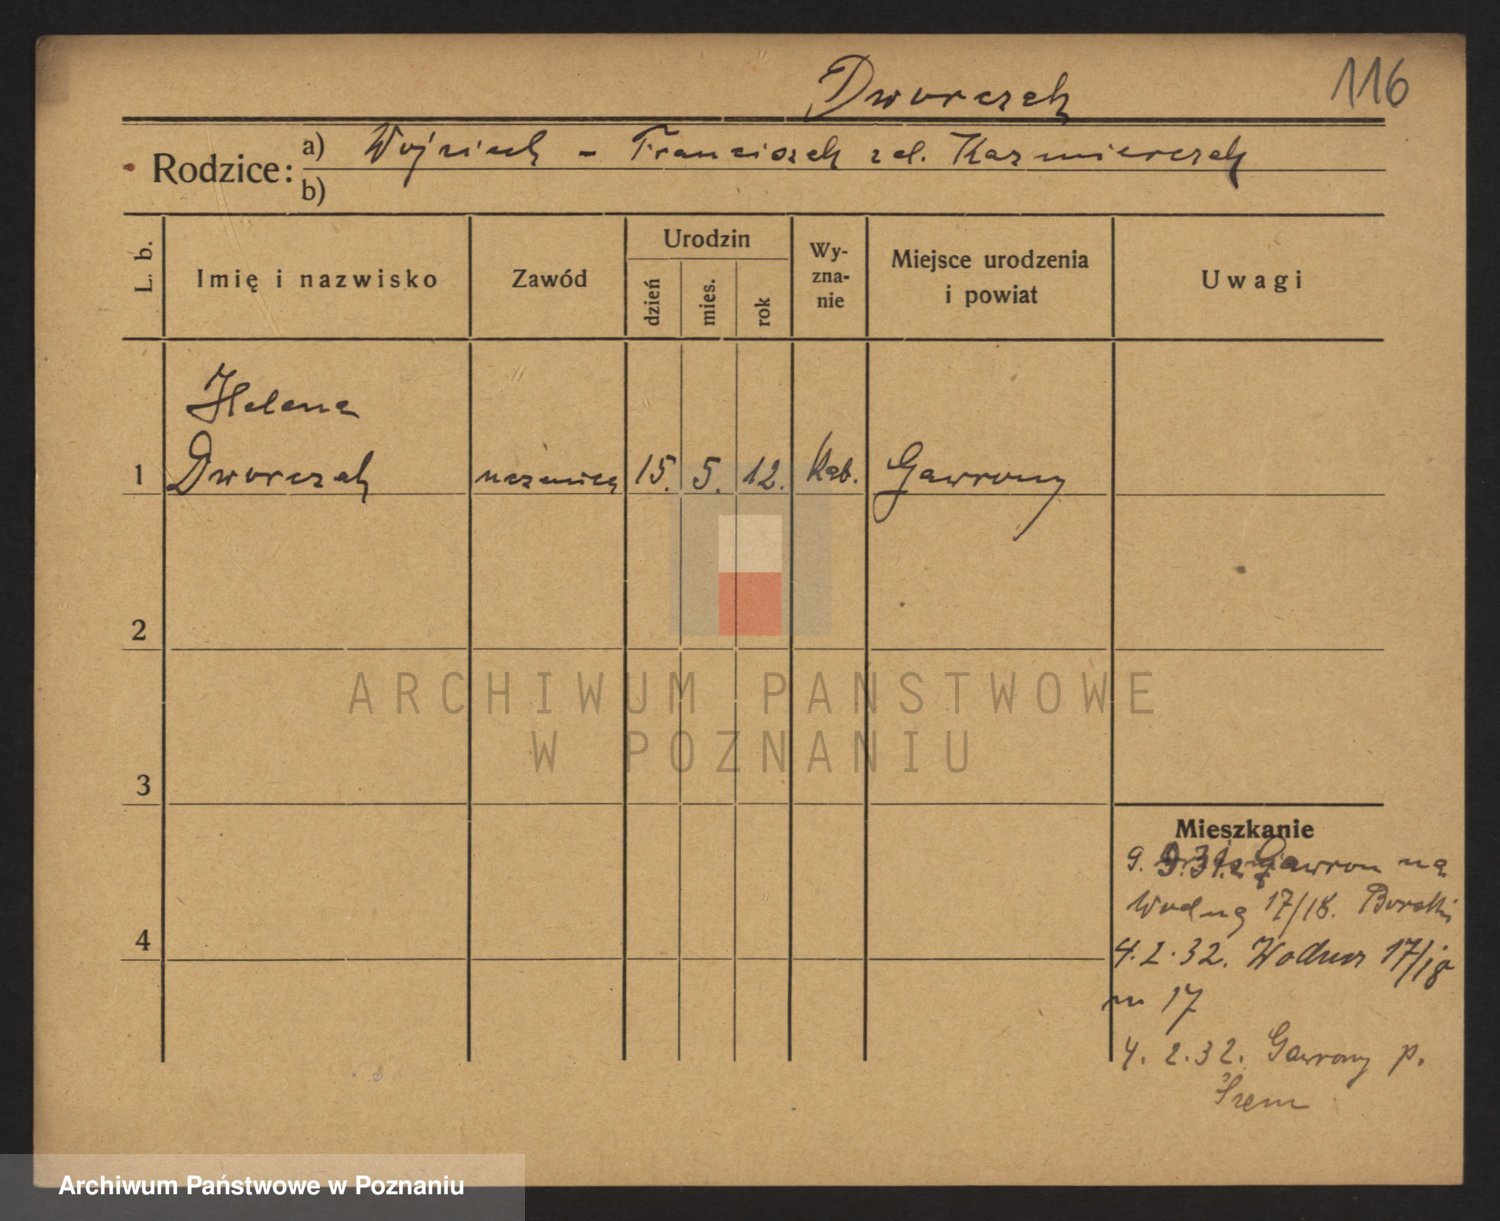 Dworczak
116
Rodzice: a) Wojciech - Franciszek zd. Kazmierczak
b)
L. b.
Imię i nazwisko
Zawód
Urodzin
dzień
mies.
rok
Wy-
zna-
nie
Miejsce urodzenia
i powiat
Uwagi
Helena
1 Dworczak uczenica 15. 5. 12. kat. Gawrony
2
ARCHIWUM PAŃSTWOWE
W POZNANIU
3
Mieszkanie
9. 9.31. z Gawron na
Wodną 17/18. Borski
4
4.2.32. Wodna 17/18
m 17
4. 2.32. Gawrony p.
Śrem
Archiwum Państwowe w Poznaniu